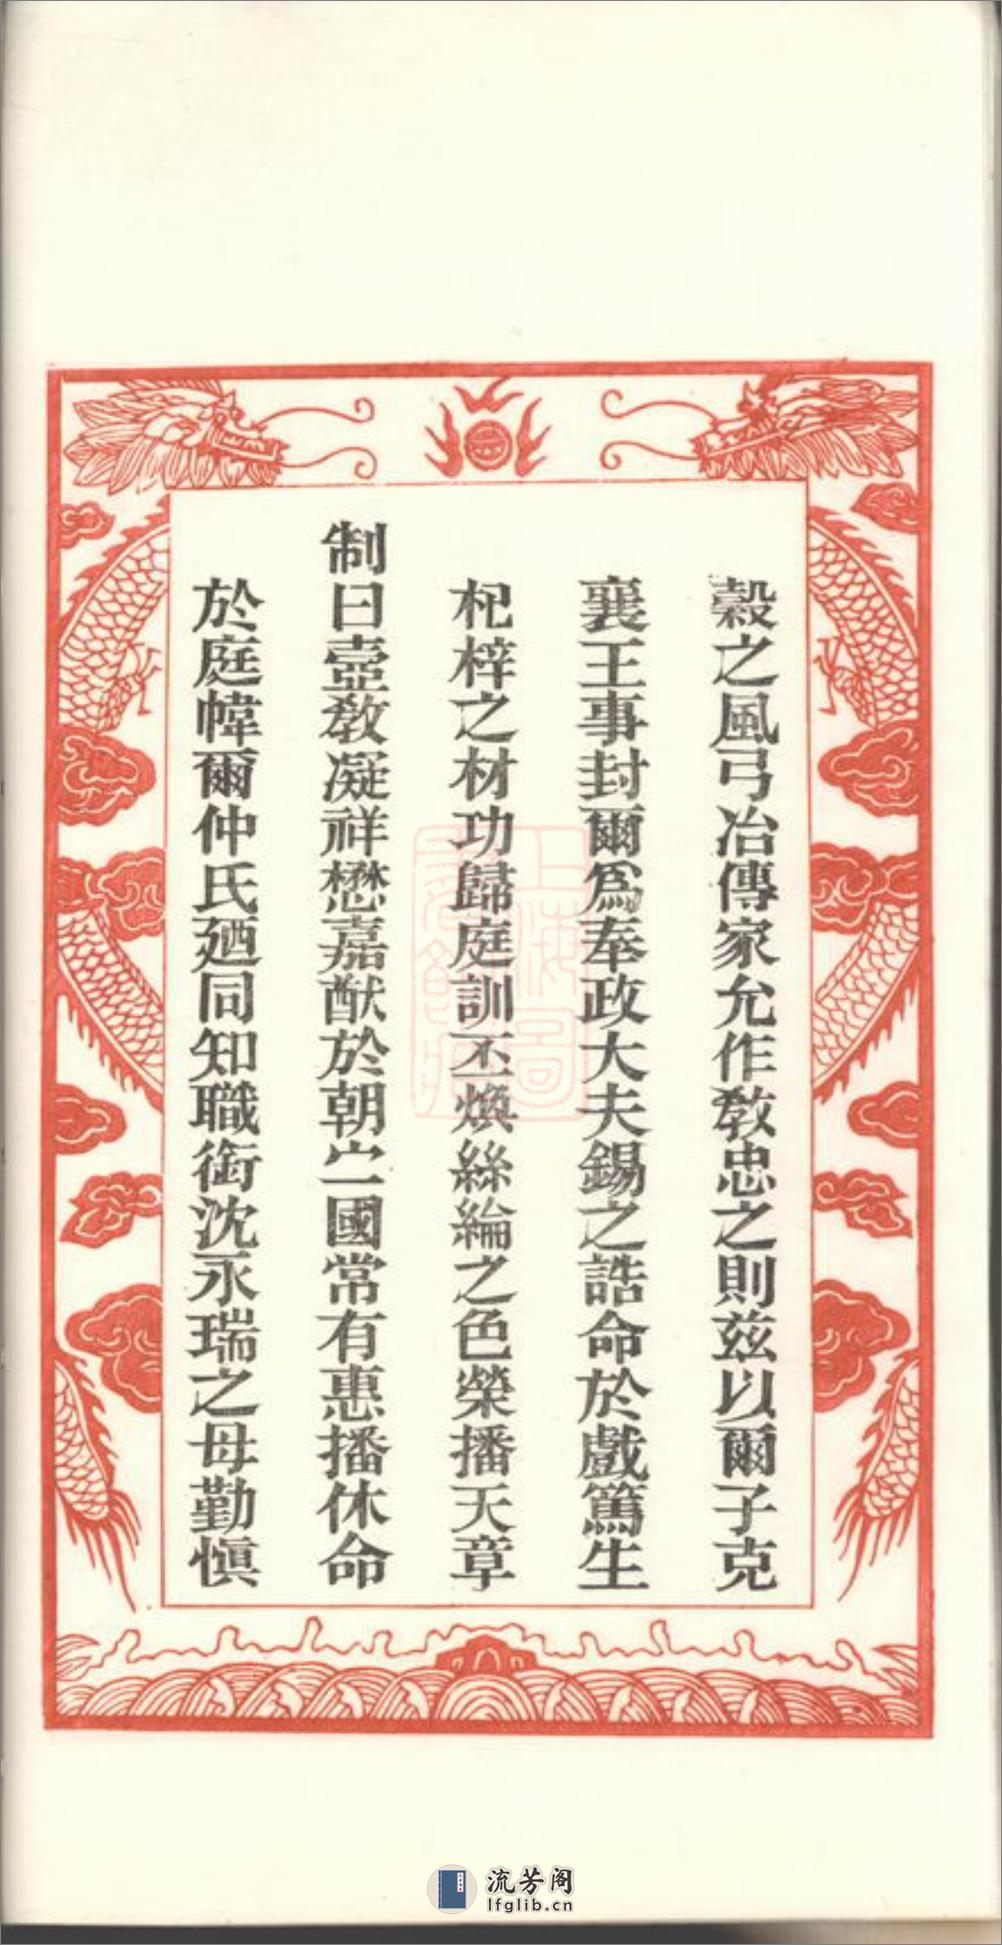 穀之風弓冶傳家允作敎忠之則兹以爾子克
襄王事封爾爲奉政大夫錫之誥命於戲篤生
杞梓之材功歸庭訓丕煥絲綸之色榮播天章
制曰壼敎凝祥懋嘉猷於朝宁國常有惠播休命
於庭幃爾仲氏廼同知職銜沈永瑞之母勤慎
上海圖書館藏
流芳阁
lfglib.cn